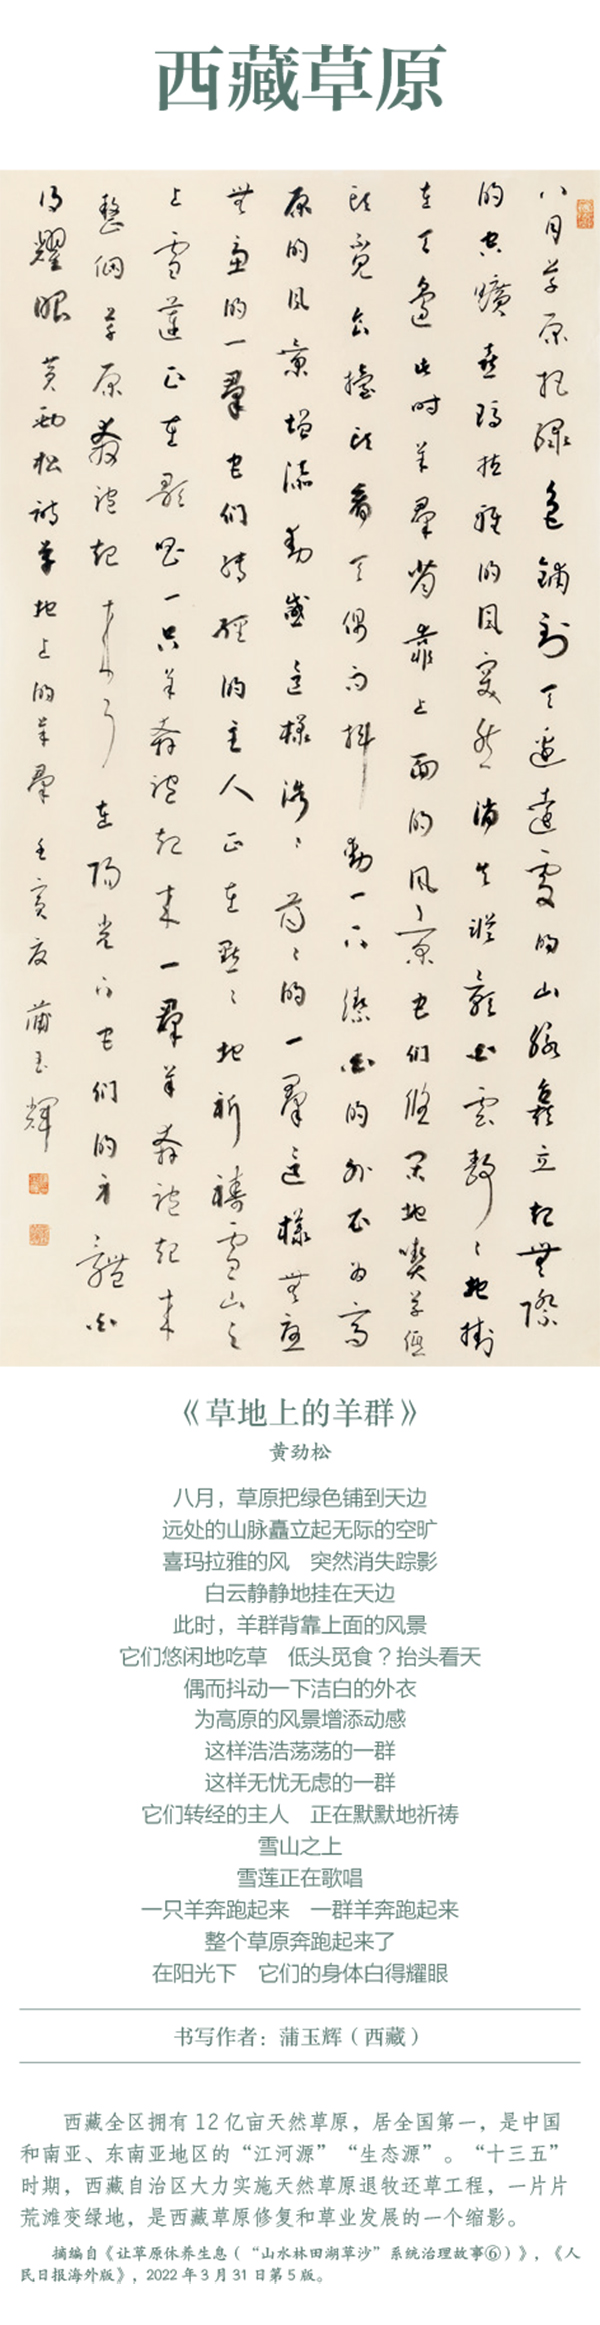 西藏草原
八月草原把綠色鋪到天邊遠處的山脉矗立起無際
的空曠喜瑪拉雅的風突然消失蹤影白雲靜〻地掛
在天邊此時羊羣背靠上面的風景它们悠閑地喫草低
頭覓食擡頭看天偶而抖動一下潔白的外衣为高
原的風景增添動感這樣浩〻蕩〻的一羣這樣無憂
無慮的一羣它们轉經的主人正在默〻地祈禱雪山之
上雪蓮正在歌唱一只羊奔跑起來一羣羊奔跑起來
整個草原奔跑起來了在陽光下它们的身體白
得耀眼 黄勁松詩草地上的羊羣 壬寅夏 蒲玉輝
《草地上的羊群》
黄劲松
八月，草原把绿色铺到天边
远处的山脉矗立起无际的空旷
喜玛拉雅的风　突然消失踪影
白云静静地挂在天边
此时，羊群背靠上面的风景
它们悠闲地吃草　低头觅食？抬头看天
偶而抖动一下洁白的外衣
为高原的风景增添动感
这样浩浩荡荡的一群
这样无忧无虑的一群
它们转经的主人　正在默默地祈祷
雪山之上
雪莲正在歌唱
一只羊奔跑起来　一群羊奔跑起来
整个草原奔跑起来了
在阳光下　它们的身体白得耀眼
书写作者：蒲玉辉（西藏）
西藏全区拥有 12 亿亩天然草原，居全国第一，是中国
和南亚、东南亚地区的“江河源”“生态源”。“十三五”
时期，西藏自治区大力实施天然草原退牧还草工程，一片片
荒滩变绿地，是西藏草原修复和草业发展的一个缩影。
摘编自《让草原休养生息（“山水林田湖草沙”系统治理故事⑥）》，《人
民日报海外版》，2022 年 3 月 31 日第 5 版。